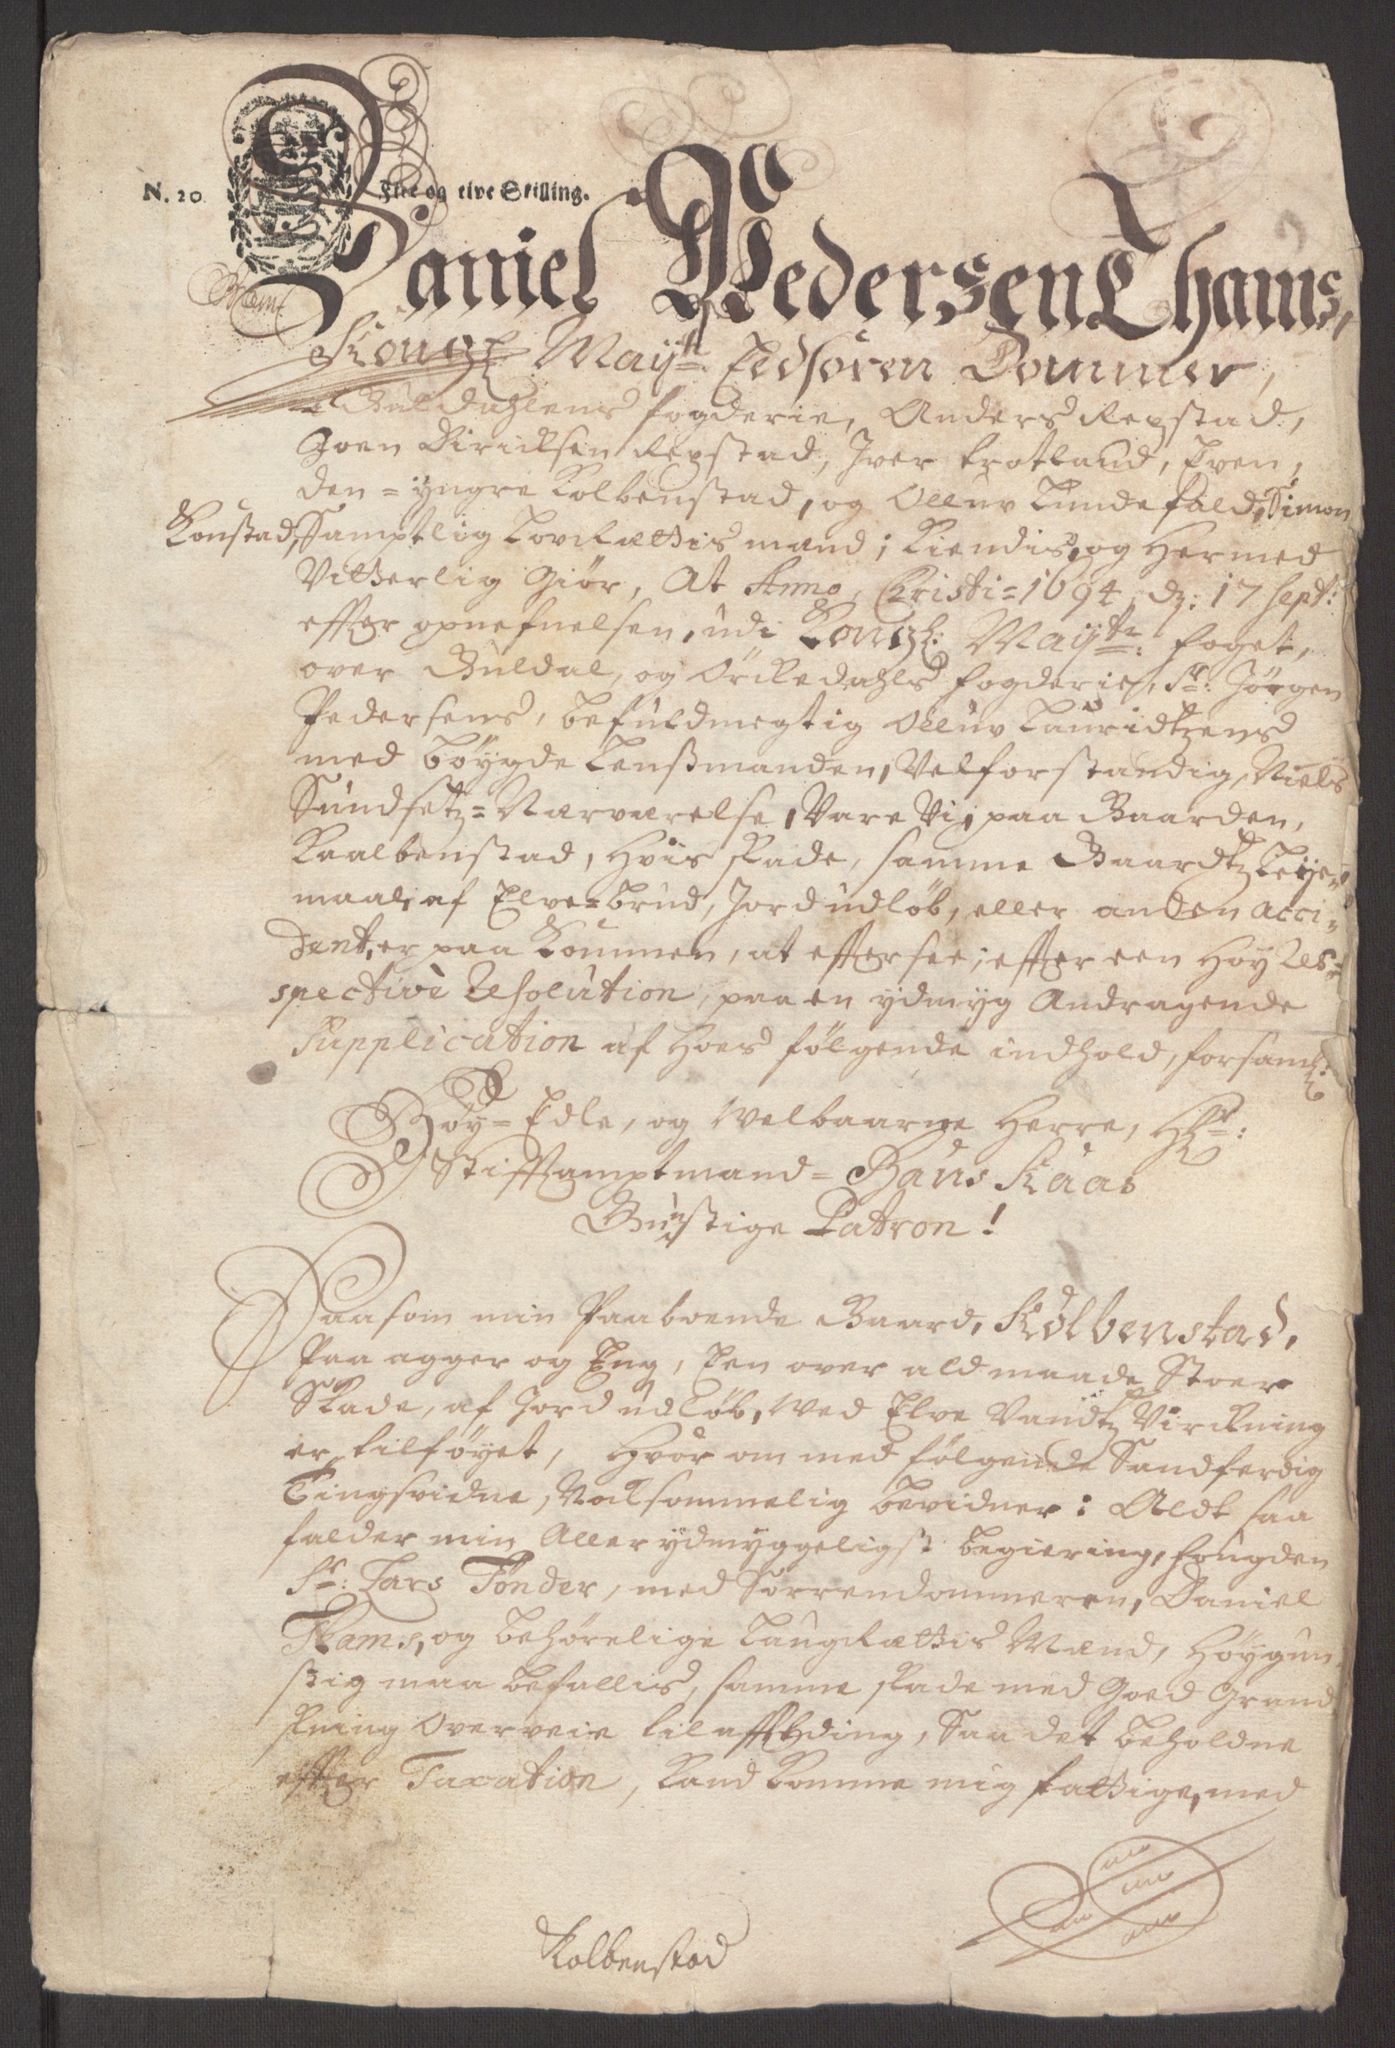 N. 20 Fire og tive Skilling.
Daniel Pedersen Thams,
Kongl: Mayts: Edsoren Dommer,
i Guldahlens fogderie, Anders Repstad,
Joen Dirichsen Repstad, Iver Krotland, Even,
den=yngre Kolbenstad, og Olluv Lundefald, Simon
Konstad, Samptlig Lovrættis mænd; Kiendis, og Hermed
Vitterlig Giør, At Anno Christi=1694, d: 17 Sept:
effter opnefnelsen, udi Kongl: Mayts: foget,
over Guldal, og Örkedahls fogderier, Sr: Jørgen
Pedersens, befuldmegtig Olluv Lauridtzens
med bøygde Lensßmanden, Velforstandig, Niels
Sundsetz=Nærværelse, Vare Vi, paa Gaarden,
Kaalbenstad, Hvis skade, samme Gaardtz Leye=
maal, af Elve=brud, Jordudløb, eller anden acci=
dent, er paa Kommen, at effter see; effter een Høy Re=
spective Resolution, paa en ydmyg Andragende
Supplication af Hoes følgende indhold, forsaml:
Høy=Edle, og Welbaarne Herre, Hr:
Stifftamptmand=Hans Kaas
Gunstige Patron!
Saasom min Paaboende Gaard, Kolbenstad,
Paa agger og Eng, Een over ald maade Stoer
Skade, af Jordudløb, wed Elve Vandtz Virckning
er tilføyet, Hvor om med følgende Sandferdig
Tingsvidne, Noksommelig bevidner: Aldt saa
falder min Allerydmyggeligst begiering, fougden
Sr: Lars Tønder, med Sorrendommeren, Daniel
Thams, og behørelige Laugrættis Mænd, Høygun
stig maa befallis, samme skade med Goed Grand
skning overveie til afften ding, Saa det beholdne
effter Taxation, kand komme mig fattige, med
Kolbenstad